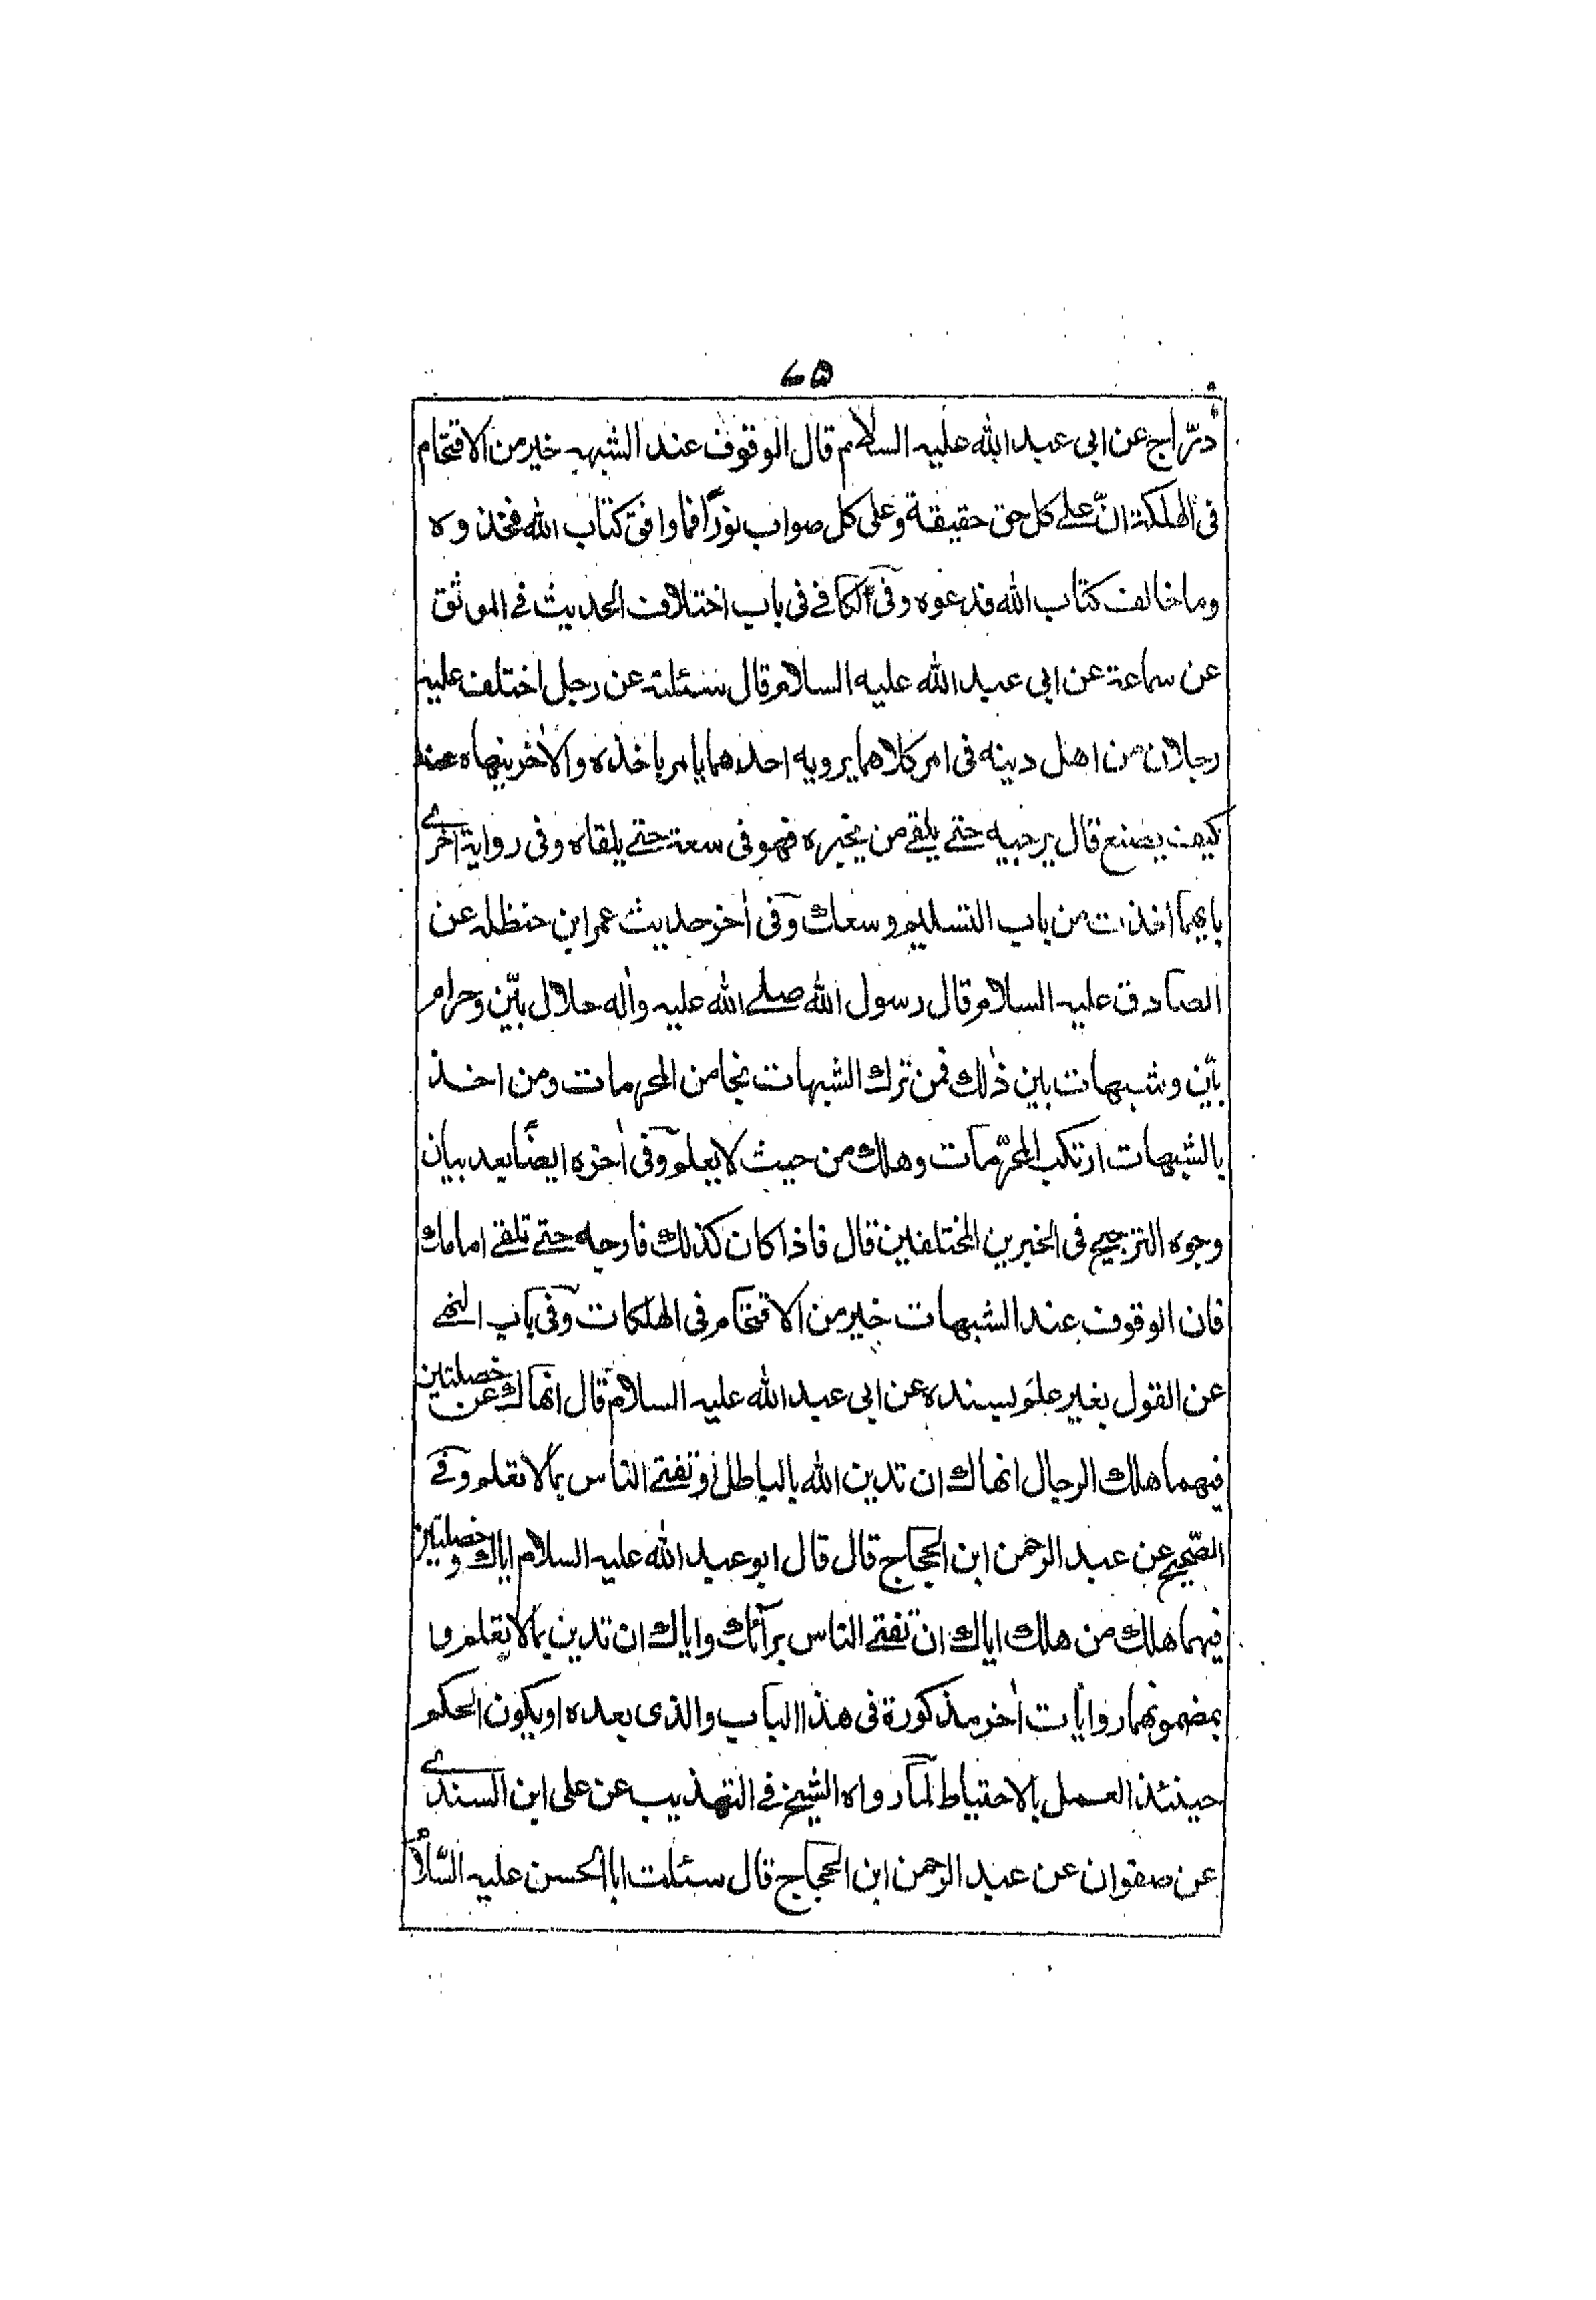 ٤٥
درّاج عن ابى عبد الله عليه السلام قال الوقوف عند الشبهه خير من الاقتحام
فى الهلكة انّ على كل حق حقيقة وعلى كل صواب نورًا فما وافق كتاب الله فخذوه
وما خالف كتاب الله فدعوه وفى الكافى فى باب اختلاف الحديث فى الموثق
عن سماعة عن ابى عبد الله عليه السلام قال سئلته عن رجل اختلف عليه
رجلان من اهل دينه فى امر كلاهما يرويه احدهما يامر باخذه والآخر ينهاه عنه
كيف يصنع قال يرجيه حتى يلقى من يخبره فهو فى سعة حتى يلقاه وفى رواية اخرى
بايهما اخذت من باب التسليم وسعك وفى آخر حديث عمر ابن حنظله عن
الصادق عليه السلام قال رسول الله صلى الله عليه وآله حلال بيّن وحرام
بيّن وشبهات بين ذلك فمن ترك الشبهات نجا من المحرمات ومن اخذ
بالشبهات ارتكب المحرّمات وهلك من حيث لا يعلم وفى آخره ايضًا بعد بيان
وجوه الترجيح فى الخبرين المختلفين قال فاذا كان كذلك فارجه حتى تلقى امامك
فان الوقوف عند الشبهات خير من الاقتحام فى الهلكات وفى باب النهى
عن القول بغير علم بسنده عن ابى عبد الله عليه السلام قال انهاك عن خصلتين
فيهما هلك الرجال انهاك ان تدين الله بالباطل وتفتى الناس بما لا تعلم وفى
الصّحيح عن عبد الرحمن ابن الحجاج قال قال ابو عبد الله عليه السلام اياك وخصلتين
فيهما هلك من هلك اياك ان تفتى الناس برآئك واياك ان تدين بما لا تعلم وا
بمضمونهما روايات اخر مذكورة فى هذا الباب والذى بعده او يكون الحكم
حينئذ العمل بالاحتياط لما رواه الشيخ فى التهذيب عن على ابن السندى
عن صفوان عن عبد الرحمن ابن الحجاج قال سئلت ابا الحسن عليه السّلام